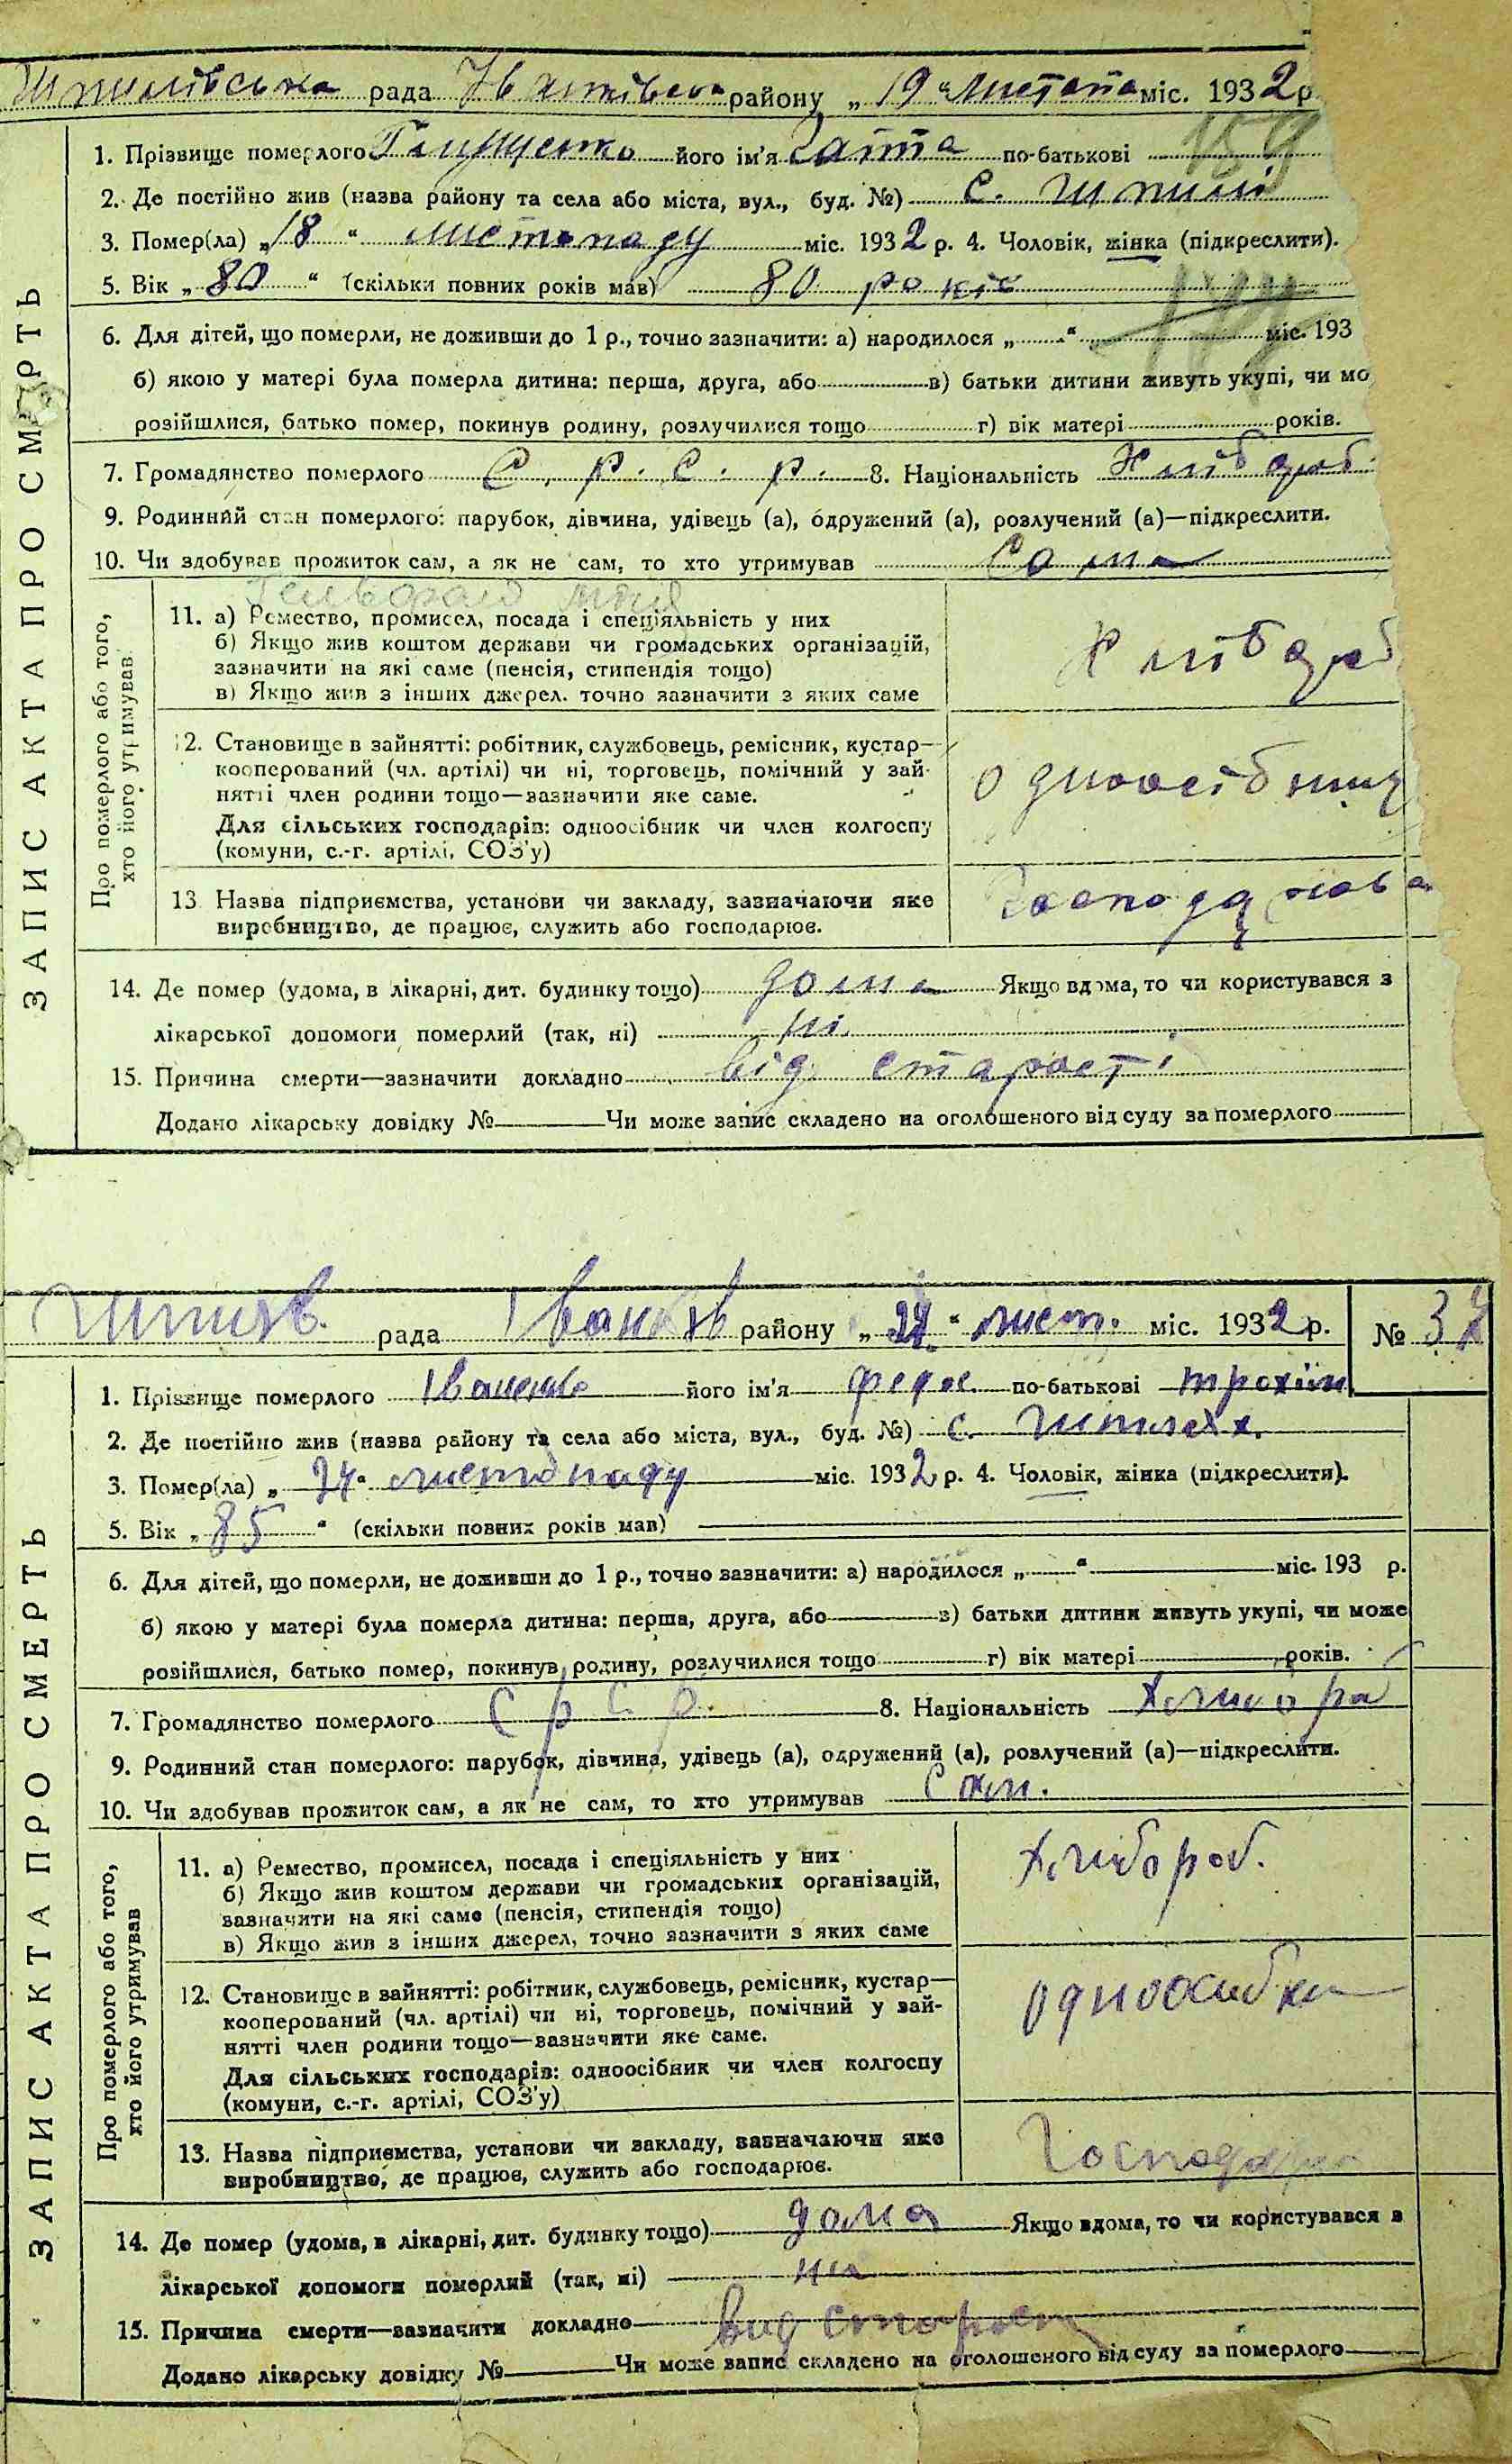 Шпилівська рада Іванківськ району „ 19 “ Листопа міс. 1932 р
159
1. Прізвище померлого його ім'я по-батькові
2. Де постійно жив (назва району та села або міста, вул., буд. №) с. Шпилі
3. Помер(ла) „ 18 “ листопаду міс. 1932 р. 4. Чоловік, жінка (підкреслити).
5. Вік „ 80 “ (скільки повних років мав) 80 років
6. Для дітей, що померли, не доживши до 1 р., точно зазначити: а) народилося „ “ міс. 193
б) якою у матері була померла дитина: перша, друга, або в) батьки дитини живуть укупі, чи мо
розійшлися, батько помер, покинув родину, розлучилися тощо г) вік матері років.
7. Громадянство померлого С. Р. С. Р. 8. Національність Хлібороб.
9. Родинний стан померлого: парубок, дівчина, удівець (а), одружений (а), розлучений (а)—підкреслити.
10. Чи здобував прожиток сам, а як не сам, то хто утримував Сама
11. а) Ремество, промисел, посада і спеціяльність у них
б) Якщо жив коштом держави чи громадських організацій,
зазначити на які саме (пенсія, стипендія тощо)
в) Якщо жив з інших джерел, точно зазначити з яких саме
Хлібороб
12. Становище в зайнятті: робітник, службовець, ремісник, кустар—
кооперований (чл. артілі) чи ні, торговець, помічний у зай-
нятті член родини тощо—зазначити яке саме.
Для сільських господарів: одноосібник чи член колгоспу
(комуни, с.-г. артілі, СОЗ'у)
одноосібниц
13. Назва підприємства, установи чи закладу, зазначаючи яке
виробництво, де працює, служить або господарює.
Господарюва
14. Де помер (удома, в лікарні, дит. будинку тощо) дома Якщо вдома, то чи користувався з
лікарської допомоги померлий (так, ні) ні
15. Причина смерти—зазначити докладно від старості
Додано лікарську довідку № Чи може запис складено на оголошеного від суду за померлого
Про померлого або того,
хто його утримував
ЗАПИС АКТА ПРО СМЕРТЬ
Шпилів. рада Іванків району „ “ лист. міс. 1932 р. №
1. Прізвище померлого Іваненко його ім'я Федос по-батькові Трохим
2. Де постійно жив (назва району та села або міста, вул., буд. №) с. Шпилях.
3. Помер(ла) „ 24 “ листопаду міс. 1932 р. 4. Чоловік, жінка (підкреслити).
5. Вік „ 85 “ (скільки повних років мав)
6. Для дітей, що померли, не доживши до 1 р., точно зазначити: а) народилося „ “ міс. 193 р.
б) якою у матері була померла дитина: перша, друга, або в) батьки дитини живуть укупі, чи може
розійшлися, батько помер, покинув родину, розлучилися тощо г) вік матері років.
7. Громадянство померлого С Р С Р. 8. Національність
9. Родинний стан померлого: парубок, дівчина, удівець (а), одружений (а), розлучений (а)—підкреслити.
10. Чи здобував прожиток сам, а як не сам, то хто утримував Сам.
11. а) Ремество, промисел, посада і спеціяльність у них
б) Якщо жив коштом держави чи громадських організацій,
зазначити на які саме (пенсія, стипендія тощо)
в) Якщо жив з інших джерел, точно зазначити з яких саме
Хлибороб.
12. Становище в зайнятті: робітник, службовець, ремісник, кустар—
кооперований (чл. артілі) чи ні, торговець, помічний у зай-
нятті член родини тощо—зазначити яке саме.
Для сільських господарів: одноосібник чи член колгоспу
(комуни, с.-г. артілі, СОЗ'у)
13. Назва підприємства, установи чи закладу, зазначаючи яке
виробництво, де працює, служить або господарює.
14. Де помер (удома, в лікарні, дит. будинку тощо) дома Якщо вдома, то чи користувався з
лікарської допомоги померлий (так, ні) ни
15. Причина смерти—зазначити докладно вид старост
Додано лікарську довідку № Чи може запис складено на оголошеного від суду за померлого
Про померлого або того,
хто його утримував
ЗАПИС АКТА ПРО СМЕРТЬ